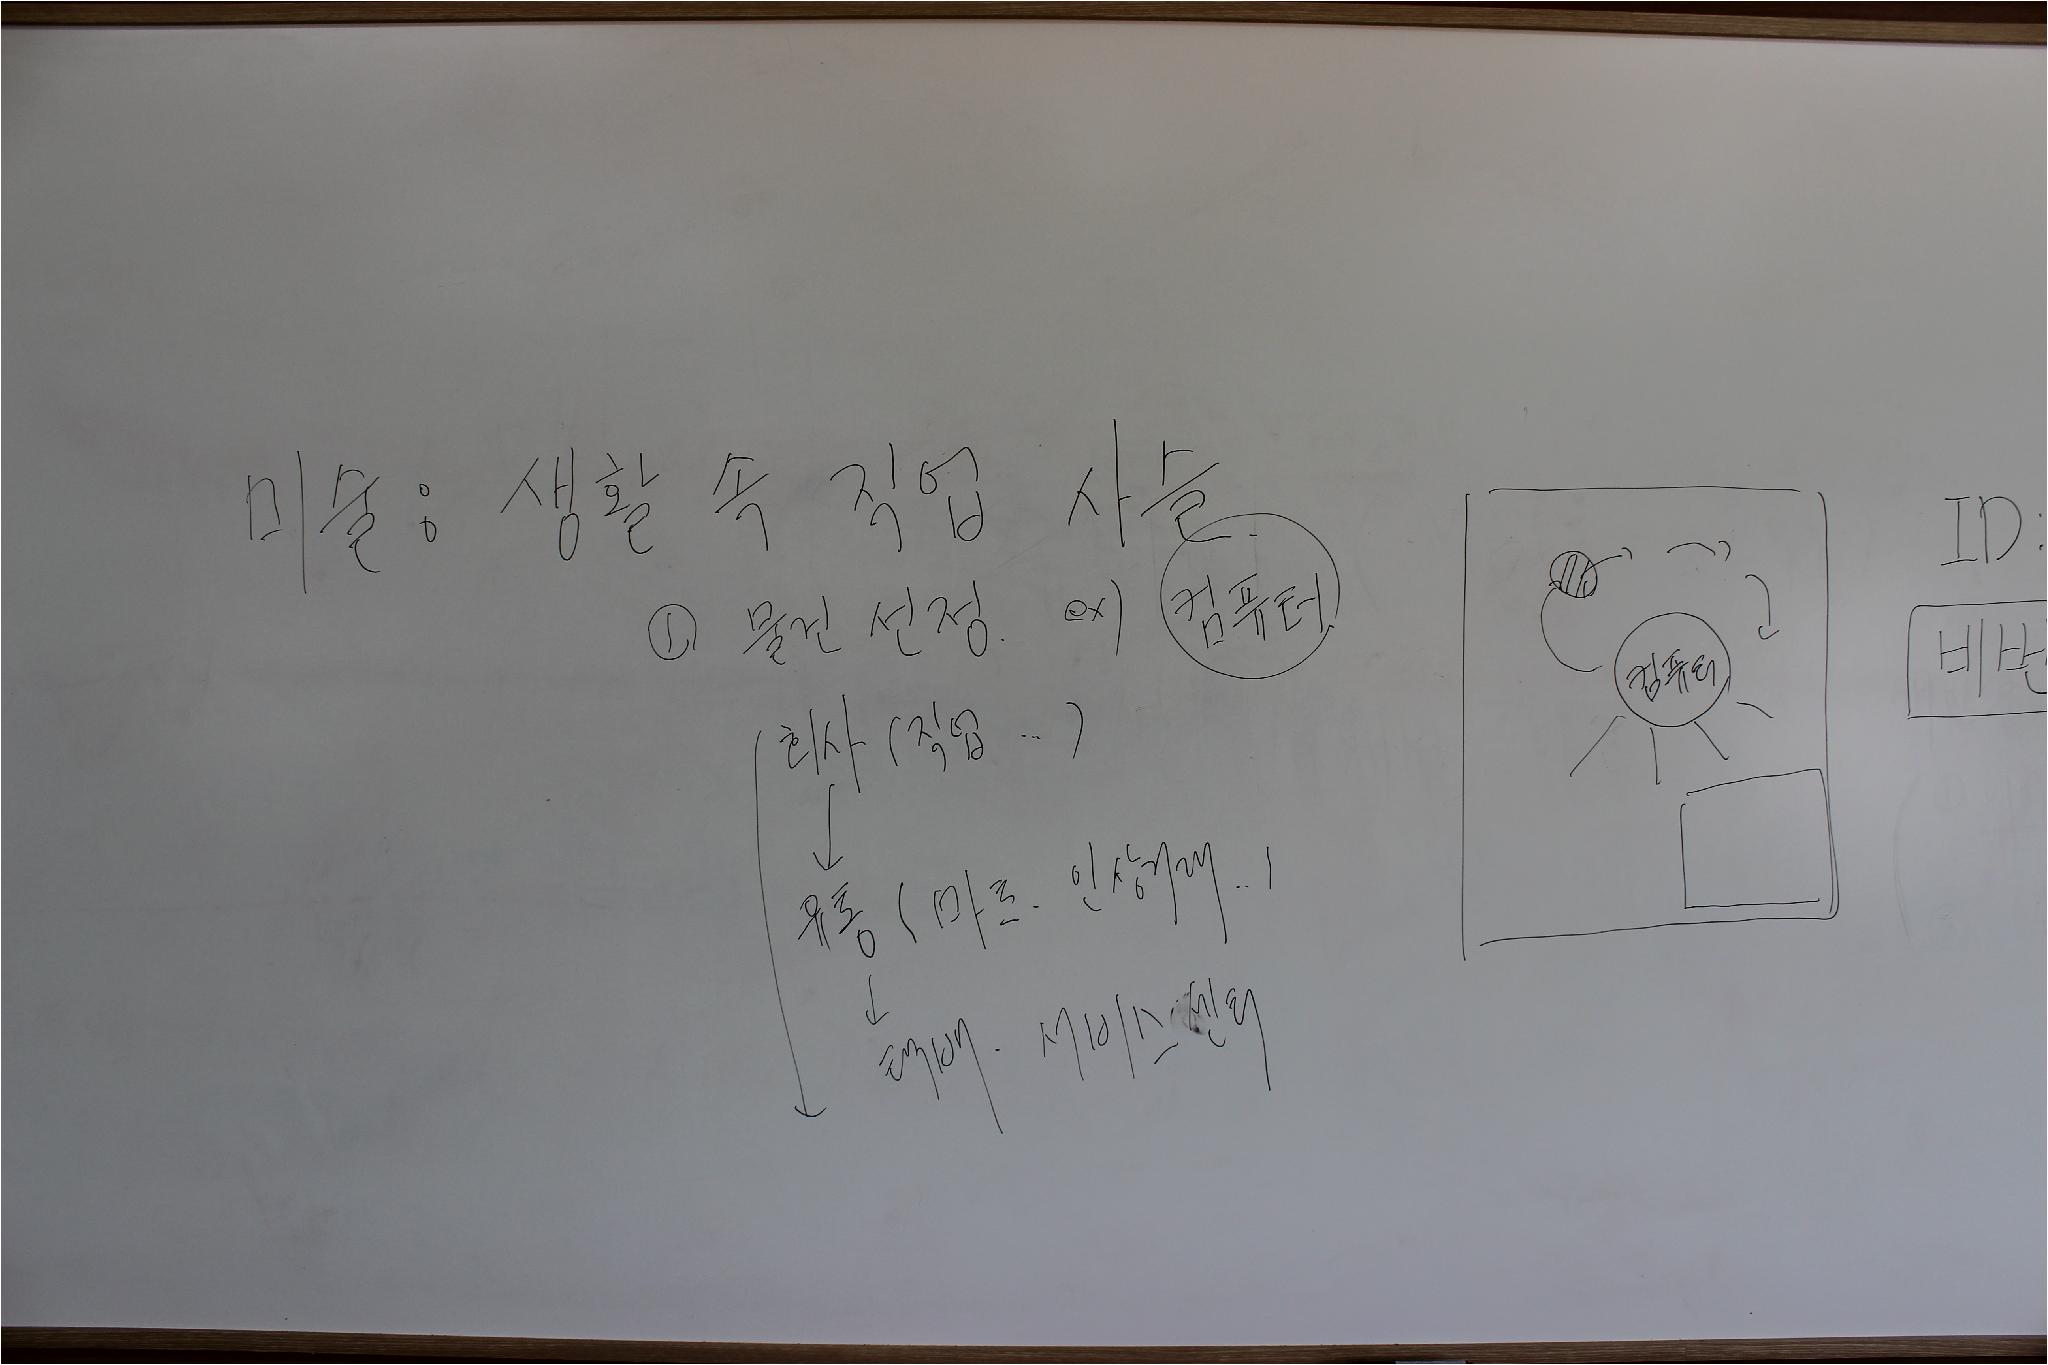 미술: 생활 속 직업 사슬
① 물건 선정. ex) 컴퓨터
회사 (직업 ...)
유통 (마트.
택배. 서비스센터
컴퓨터
ID: